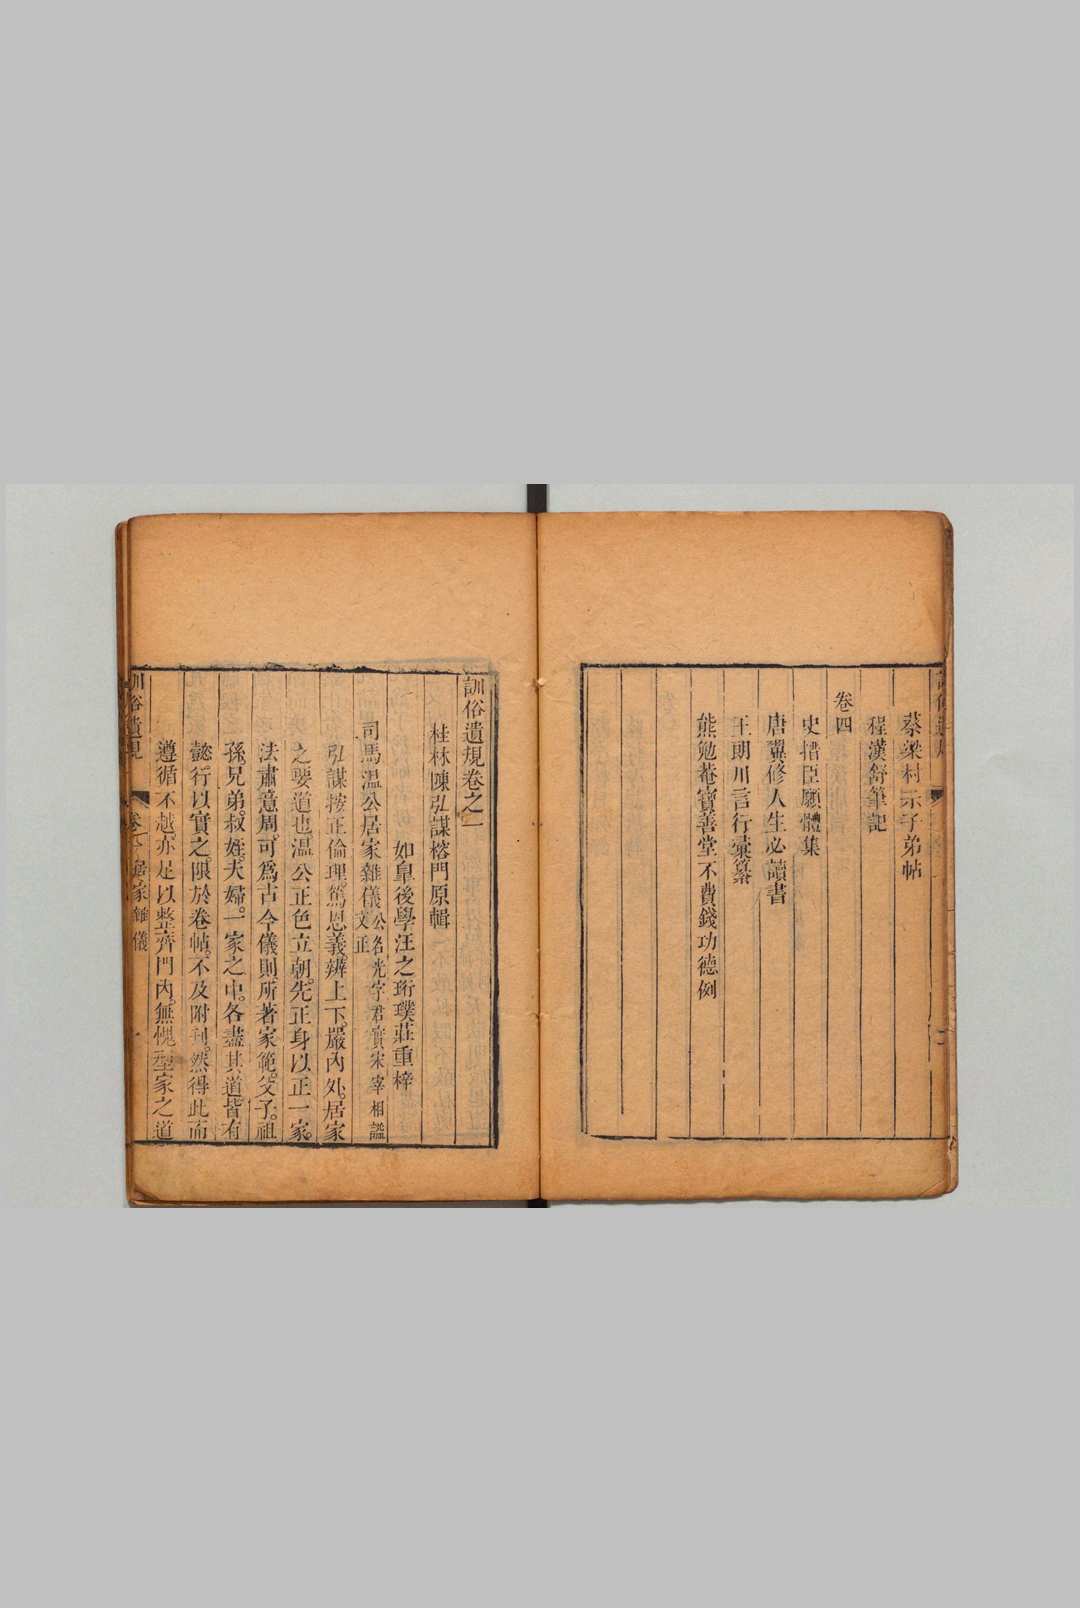 蔡梁村示子弟帖
程漢舒筆記
卷四
史搢臣願體集
唐翼修人生必讀書
王朗川言行彙纂
熊勉菴寶善堂不費錢功德例
訓俗遺規卷之一
桂林陳弘謀榕門原輯
如皐後學汪之珩璞莊重梓
司馬温公居家雜儀公名光字君實宋宰相諡文正
弘謀按正倫理篤恩義辨上下嚴內外居家
之要道也温公正色立朝先正身以正一家
法肅意周可爲古今儀則所著家範父子祖
孫兄弟叔姪夫婦一家之中各盡其道皆有
懿行以實之限於卷帖不及附刊然得此而
遵循不越亦足以整齊門內無愧型家之道
訓俗遺規 卷之一 居家雜儀 一